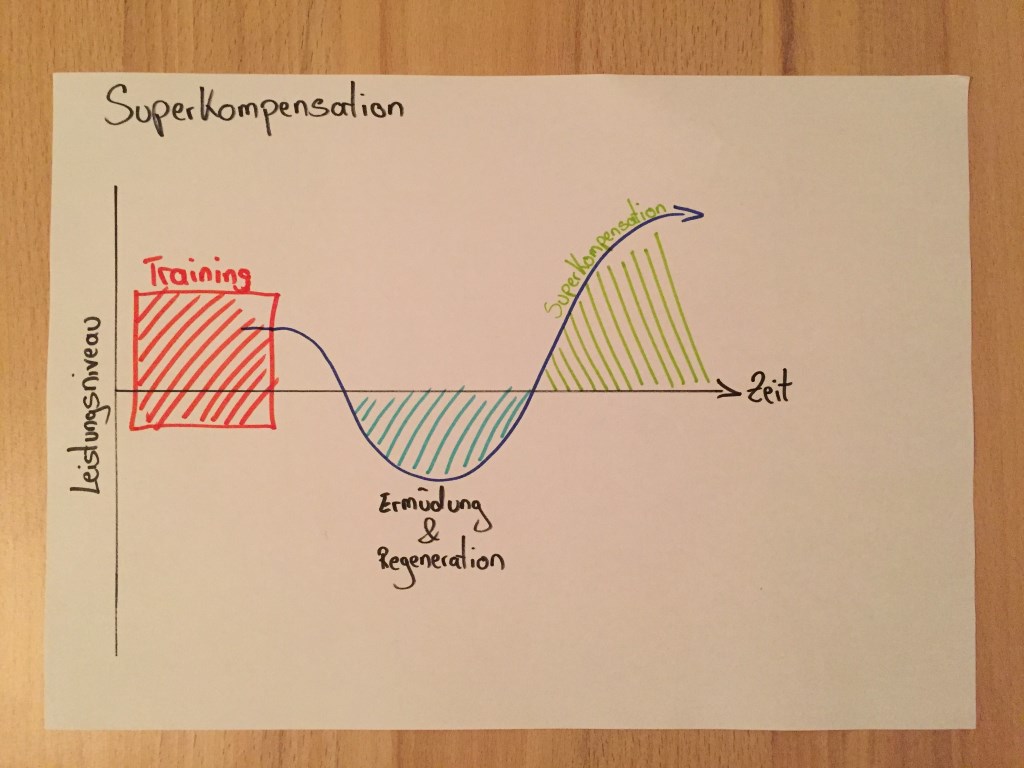 Superkompensation
Training
Superkompensation
Leistungsniveau
Zeit
Ermüdung
&
Regeneration